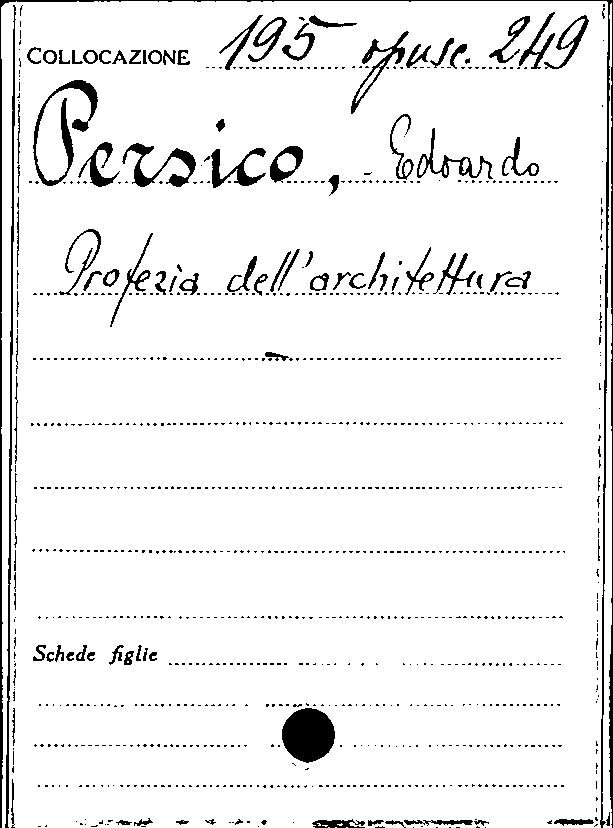 COLLOCAZIONE 195 opusc. 249
Persico, Edoardo
Profezia dell'architettura
Schede figlie